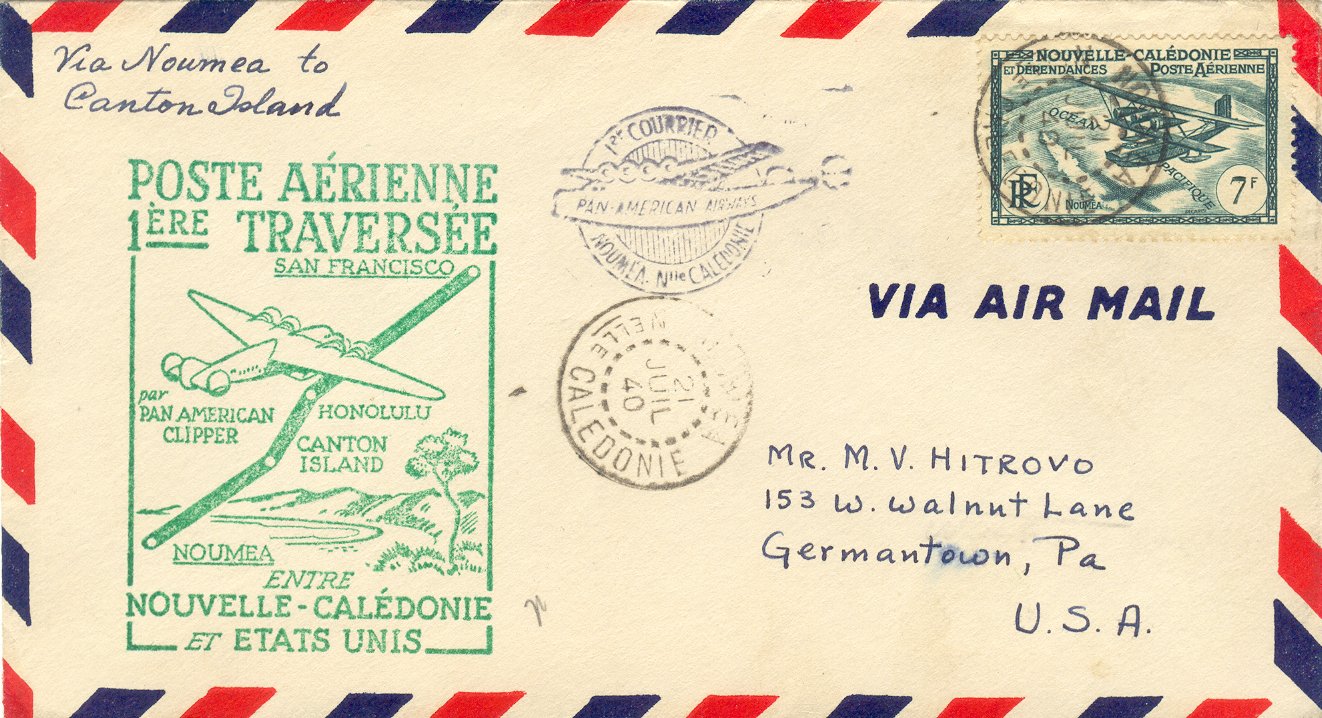 Via Noumea to
Canton Island
POSTE AÉRIENNE
1ÈRE TRAVERSÉE
SAN FRANCISCO
par
PAN AMERICAN
CLIPPER
HONOLULU
CANTON
ISLAND
NOUMEA
ENTRE
NOUVELLE-CALÉDONIE
ET ETATS UNIS
1er COURRIER
PAN-AMERICAN AIRWAYS
NOUMEA. Nlle CALEDONIE
NOUMEA
21
JUIL
40
NELLE CALEDONIE
NOUVELLE-CALÉDONIE
ET DÉPENDANCES POSTE AÉRIENNE
OCEAN
PACIFIQUE
NOUMÉA
RF
7F
VIA AIR MAIL
MR. M. V. HITROVO
153 W. Walnut Lane
Germantown, Pa
U. S. A.